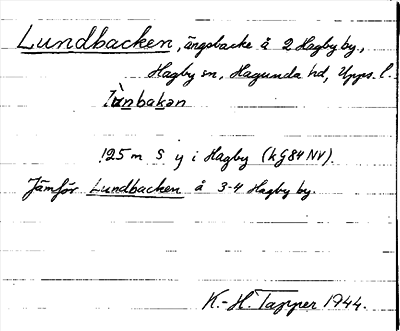 Lundbacken, ängsbacke å 2 Hagby by.,
Hagby sn, Hagunda hd, Upps. l.
125 m S y i Hagby (kg 84 NV).
Jämför Lundbacken å 3-4 Hagby by.
K.-H. Tapper 1944.